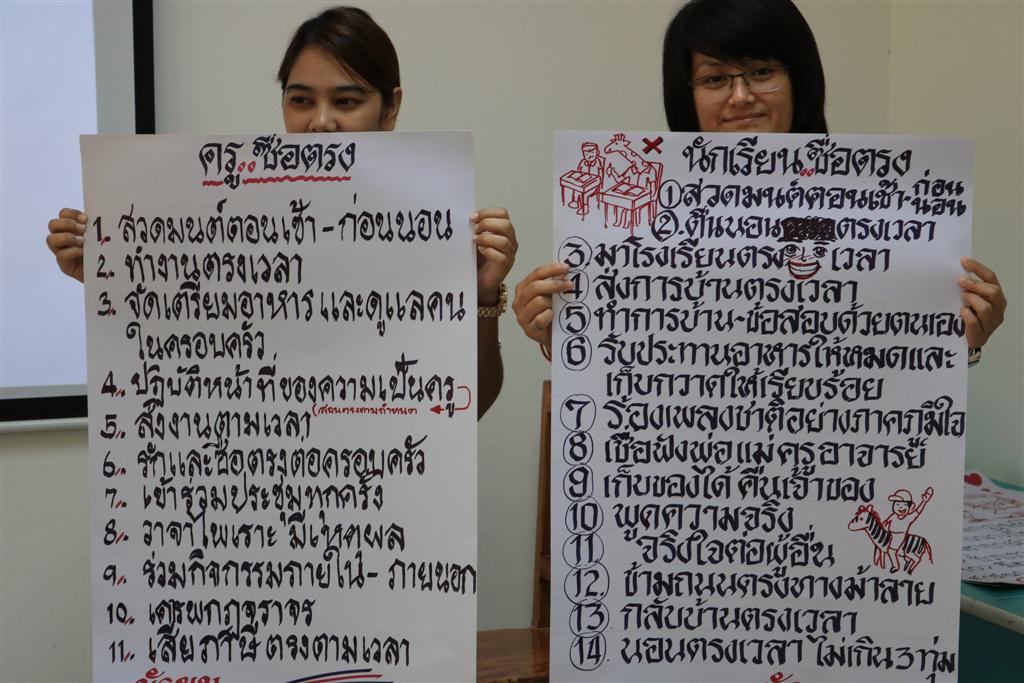 ครู..ซื่อตรง
1. สวดมนต์ตอนเช้า - ก่อนนอน
2. ทำงานตรงเวลา
3. จัดเตรียมอาหารและดูแลคน
ในครอบครัว
4. ปฏิบัติหน้าที่ของความเป็นครู
(สอนตรงตามกำหนด)
5. ส่งงานตามเวลา
6. รักและซื่อตรงต่อครอบครัว
7. เข้าร่วมประชุมทุกครั้ง
8. วาจาไพเราะ มีเหตุผล
9. ร่วมกิจกรรมภายใน - ภายนอก
10. เคารพกฎจราจร
11. เสียภาษีตรงตามเวลา
นักเรียน..ซื่อตรง
1 สวดมนต์ตอนเช้า-ก่อนนอน
2. ตื่นนอนตรงเวลา
3 มาโรงเรียนตรงเวลา
4 ส่งการบ้านตรงเวลา
5 ทำการบ้าน-ข้อสอบด้วยตนเอง
6 รับประทานอาหารให้หมดและ
เก็บกวาดให้เรียบร้อย
7 ร้องเพลงชาติอย่างภาคภูมิใจ
8 เชื่อฟังพ่อแม่ครูอาจารย์
9 เก็บของได้ คืนเจ้าของ
10 พูดความจริง
11 จริงใจต่อผู้อื่น
12. ข้ามถนนตรงทางม้าลาย
13 กลับบ้านตรงเวลา
14 นอนตรงเวลา ไม่เกิน 3 ทุ่ม